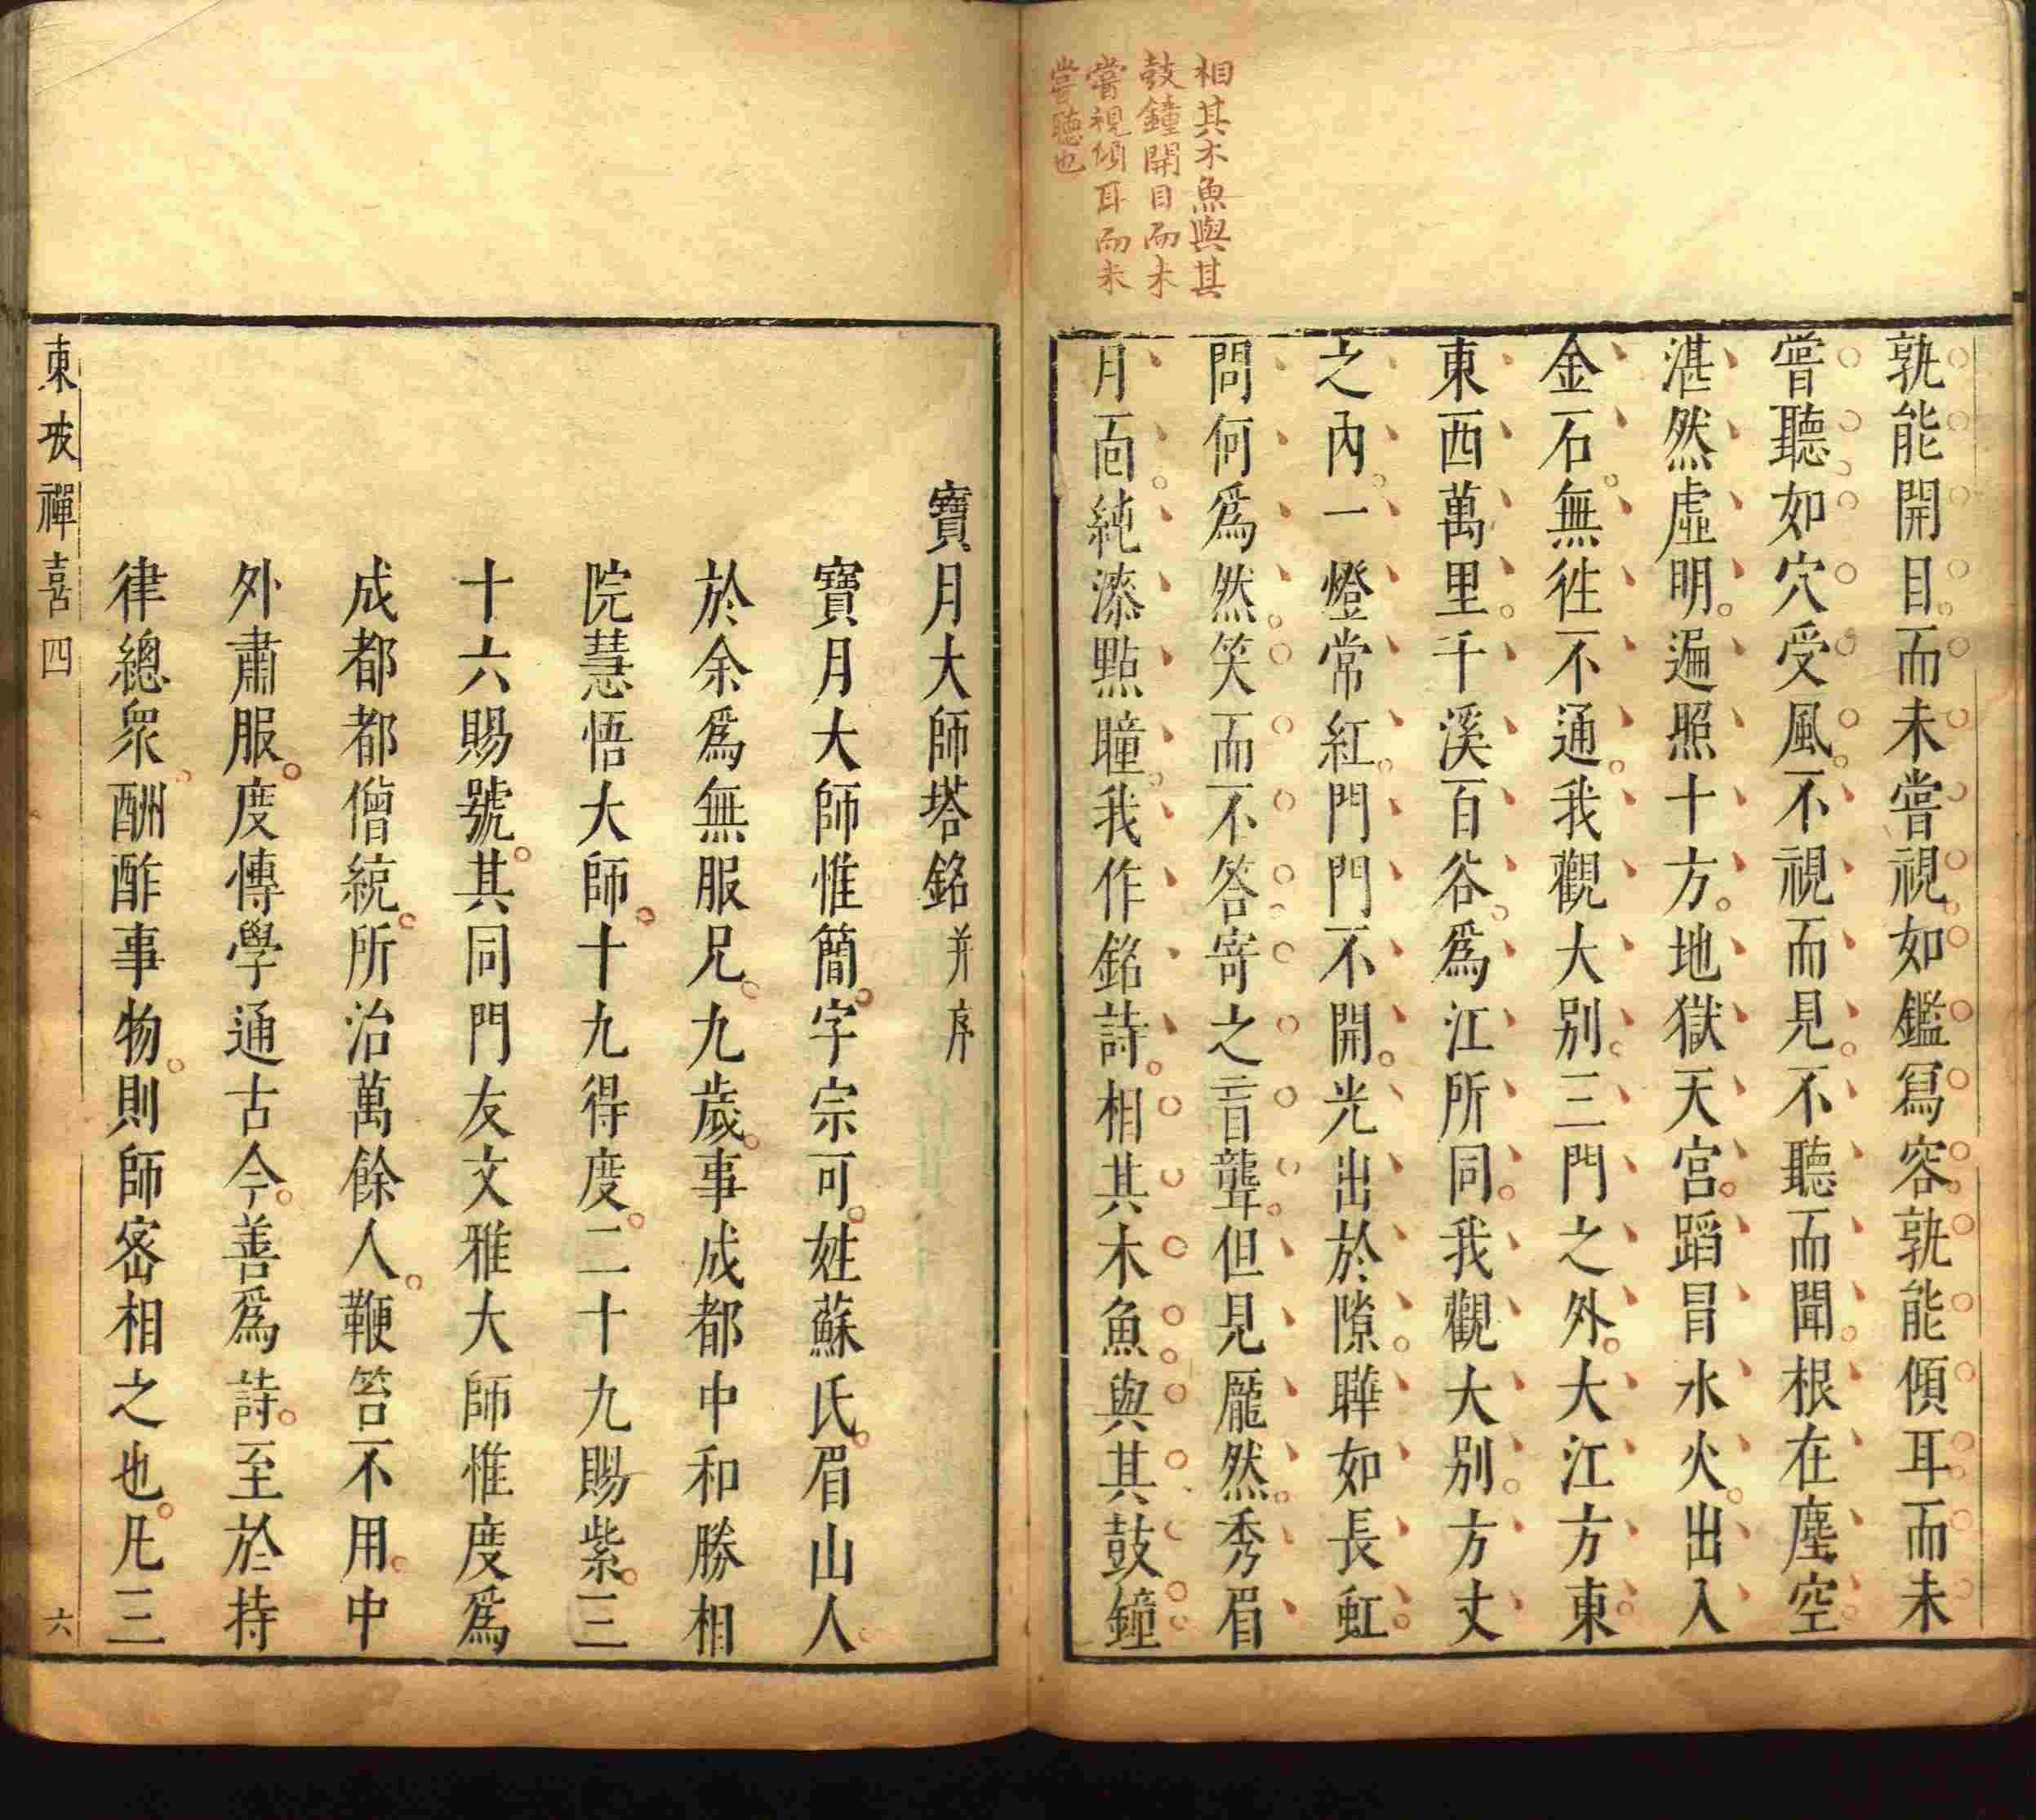 相其木魚與其
鼓鐘開目而未
嘗視傾耳而未
嘗聽也
孰能開目而未嘗視如鑑寫容孰能傾耳而未
嘗聽如穴受風不視而見不聽而聞根在塵空
湛然虛明遍照十方地獄天宮蹈冒水火出入
金石無徃不通我觀大別三門之外大江方東
東西萬里千溪百谷為江所同我觀大別方丈
之內一燈常紅門門不開光出於隙曄如長虹
問何為然笑而不答寄之盲聾但見龐然秀眉
月面純漆點瞳我作銘詩相其木魚與其鼓鐘
寶月大師塔銘并序
寶月大師惟簡字宗可姓蘇氏眉山人
於余為無服兄九歲事成都中和勝相
院慧悟大師十九得度二十九賜紫三
十六賜號其同門友文雅大師惟度為
成都都僧統所治萬餘人鞭笞不用中
外肅服度博學通古今善為詩至於持
律總眾酬酢事物則師密相之也凡三
東坡禪喜四 六